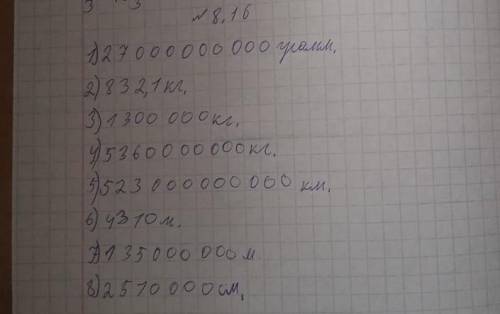 3 3
№ 8.16
1) 27 000 000 000 грамм.
2) 832,1 кг.
3) 1300 000 кг.
4) 53600 00 000 кг.
5) 523 000 000 000 км.
6) 4310 м.
7) 135 000 000 м
8) 2570 000 см.